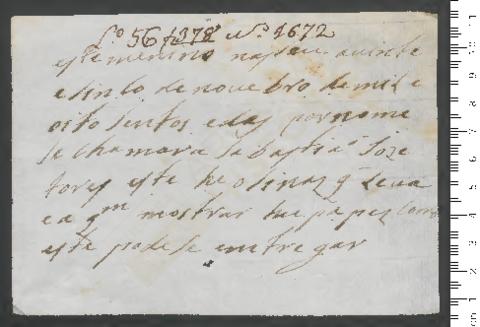 Lº 56 f 378 v Nº 1672
este menino nasseu a vinte
e sinco de novebro de mil e
oito sentos e das por nome
se chamara Sabastiaõ Joze
tores este he o sinaz q leva
e a qm mostrar hu papez com
este pode se emtregar